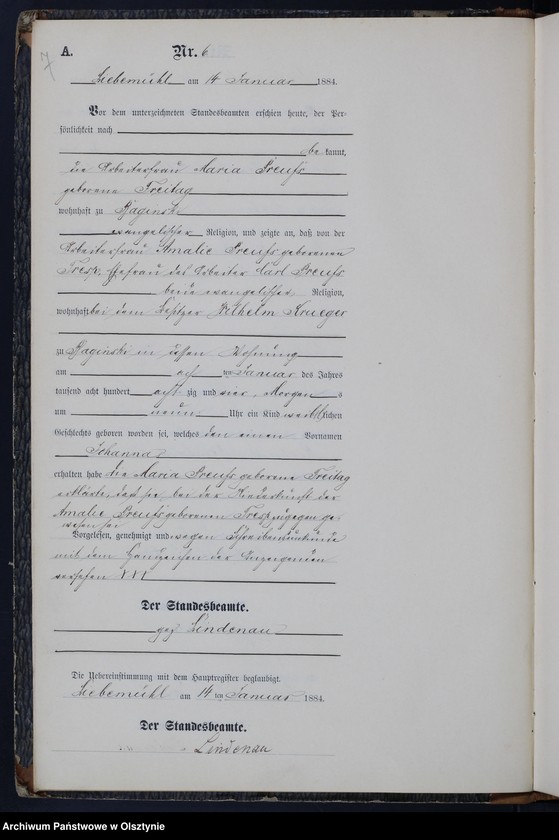 7
A. Nr. 6
Liebemühl am 14 Januar 1884.
Vor dem unterzeichneten Standesbeamten erschien heute, der Per-
sönlichkeit nach
be kannt,
die Arbeiterfrau Maria Preuß
geborene Freitag
wohnhaft zu Baginski
evangelischer Religion, und zeigte an, daß von der
Arbeiterfrau Amalie Preuß geborenen
Ehefrau des Arbeiter Carl Preuß
beide evangelischer Religion,
wohnhaft bei dem Besitzer Wilhelm Krueger
zu Baginski in dessen Wohnung
am ten Januar des Jahres
tausend acht hundert acht zig und vier, Morgens
um neun Uhr ein Kind weiblichen
Geschlechts geboren worden sei, welches den einen Vornamen
Johanna
erhalten habe die Maria Preuß geborene Freitag
erklärte, daß sie bei der Niederkunft der
Amalie Preuß geborenen zugegen ge-
wesen sei
Vorgelesen, genehmigt und wegen Schreibensunkunde
mit dem Handzeichen der Anzeigenden
versehen
Der Standesbeamte.
gez Lindenau
Die Uebereinstimmung mit dem Hauptregister beglaubigt.
Liebemühl am 14 ten Januar 1884.
Der Standesbeamte.
Lindenau
Archiwum Państwowe w Olsztynie